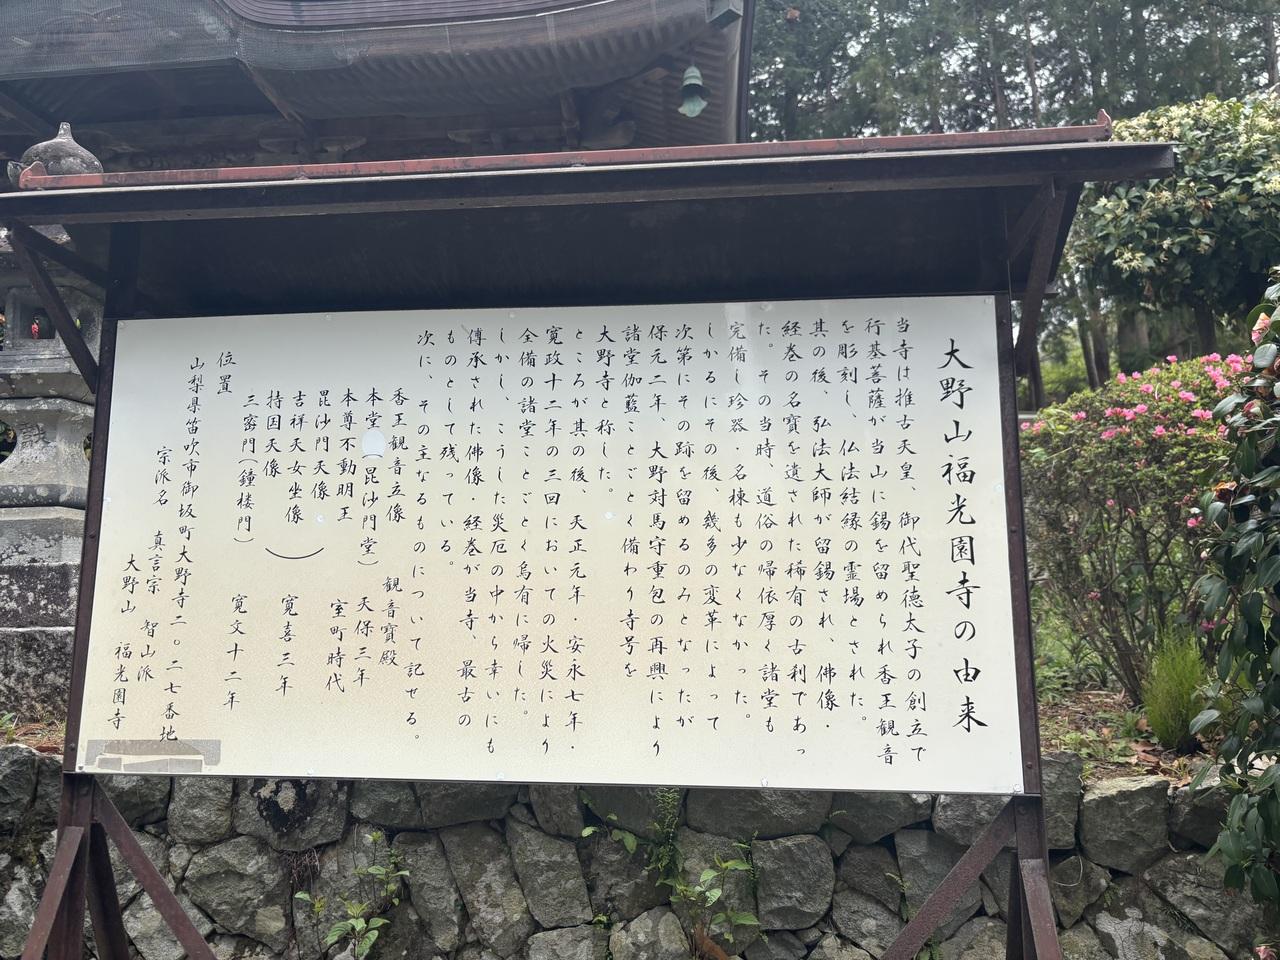 大野山福光園寺の由来
当寺は推古天皇、御代聖徳太子の創立で
行基菩薩が当山に錫を留められ香王観音
を彫刻し、仏法結縁の霊場とされた。
其の後、弘法大師が留錫され、佛像・
経巻の名寶を遺された稀有の古刹であっ
た。その当時、道俗の帰依厚く諸堂も
完備し珍器・名棟も少なくなかった。
しかるにその後、幾多の変革によって
次第にその跡を留めるのみとなったが
保元二年、大野対馬守重包の再興により
諸堂伽藍ことごとく備わり寺号を
大野寺と称した。
ところが其の後、天正元年・安永七年・
寛政十二年の三回においての火災により
全備の諸堂ことごとく烏有に帰した。
しかし、こうした災厄の中から幸いにも
傳承された佛像・経巻が当寺、最古の
ものとして残っている。
次に、その主なるものについて記せる。
香王観音立像 観音寶殿
本堂 毘沙門堂） 天保三年
本尊不動明王 室町時代
毘沙門天像
吉祥天女坐像 寛喜三年
持国天像
三密門（鐘楼門） 寛文十二年
位置
山梨県笛吹市御坂町大野寺二〇二七番地
宗派名 真言宗 智山派
大野山 福光園寺